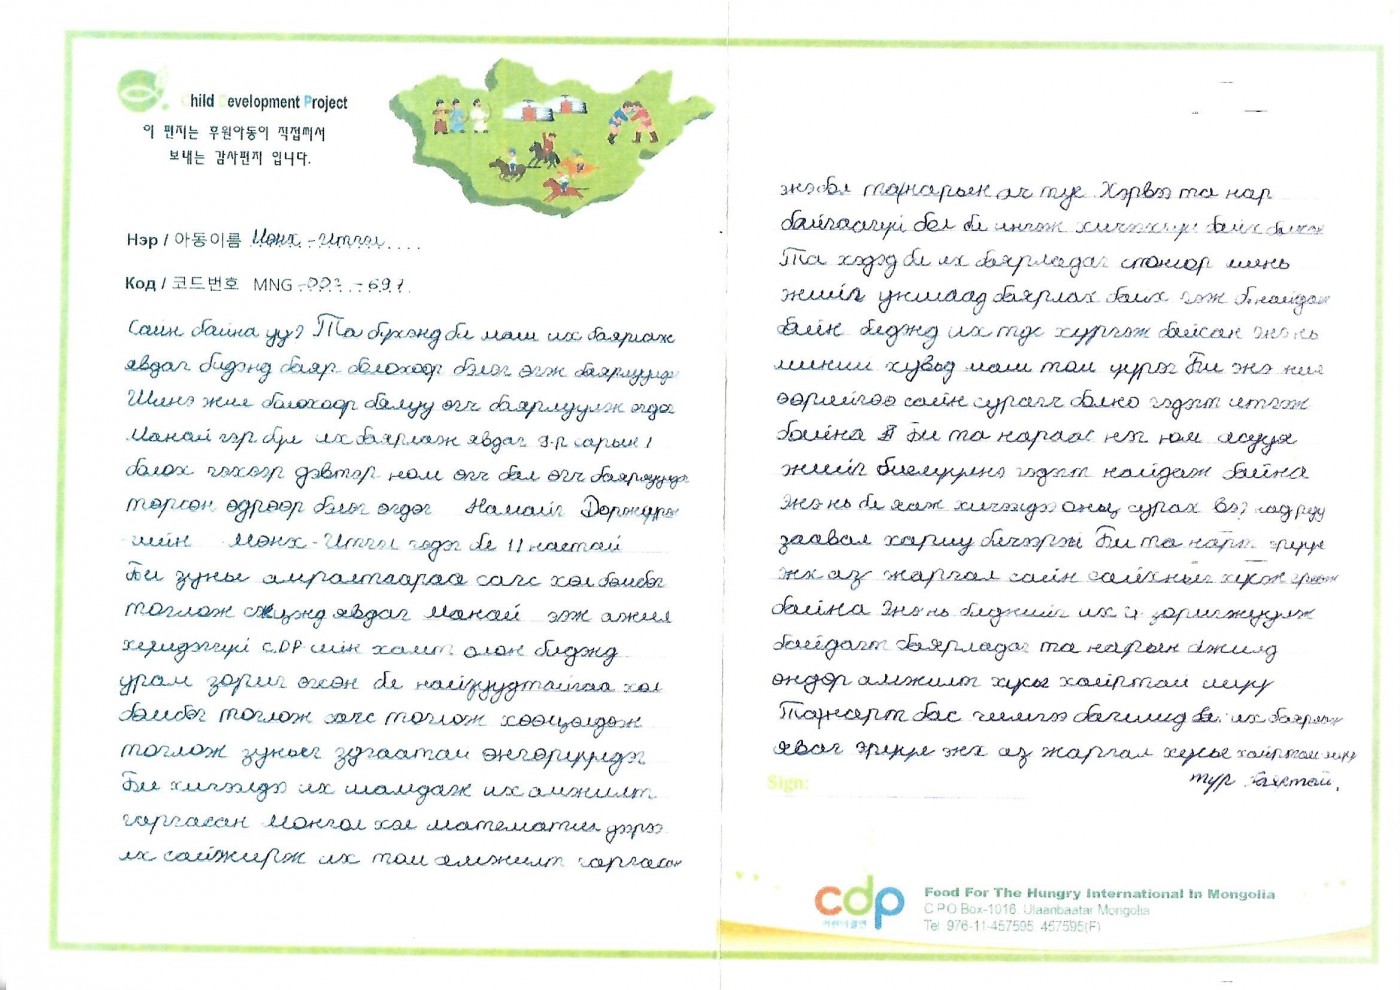 Child Development Project
이 편지는 후원아동이 직접써서
보내는 감사편지 입니다.
Нэр / 아동이름 Мөнх-Итгэл
Код / 코드번호 MNG -003 -691
Сайн байна уу? Та бүхэнд би маш их баярлаж
явдаг бидэнд баяр болохоор бэлэг өгж баярлуулдаг
Шинэ жил болохоор бялуу өгч баярлуулж өгдөг
Манай гэр бүл их баярлаж явдаг 9-р сарын 1
болох гэхээр дэвтэр ном өгч бал өгч баярлуулдаг
төрсөн өдрөөр бэлэг өгдөг Намайг
ийн Мөнх-Итгэл гэдэг би 11 настай
Би зуны амралтаараа сагс хөл бөмбөг
тоглож явдаг Манай ээж ажил
CDP ийн хамт олон бидэнд
урам зориг өгсөн би найзуудтайгаа хөл
бөмбөг тоглож сагс тоглож хөөцөлдөж
тоглож зуныг зугаатай өнгөрүүлдэг
Би хичээлдээ их шамдаж их амжилт
гаргасан Монгол хэл математик дээрээ
их сайжирж их том амжилт гаргасан
энэ бол та нарын ач тус Хэрвээ та нар
байгаагүй бол би ингэж хичээхгүй байх байсан
Та хэдэд би их баярладаг миний
жийг уншаад баярлах байх гэж би найдаж
байн бидэнд их тус хүргэж байсан энэ нь
миний хувьд маш том үүрэг Би энэ жил
өөрийгөө сайн сурагч болно гэдэгт итгэж
байна Би та нараас нэг юм асууя
жийг биелүүлнэ гэдэгт найдаж байна
энэ нь би яаж хичээлдээ онц сурах вэ?
заавал хариу бичээрэй Би та нарт эрүүл
энх аз жаргал сайн сайхныг хүсэж
байна Энэ нь биднийг их зоригжуулж
байдагт баярладаг та нарын ажилд
өндөр амжилт хүсье хайртай шүү
Та нарт бас чимгээ багшид их баярлаж
яваг эрүүл энх аз жаргал хүсье хайртай шүү
түр баяртай.
Sign:
cdp
어린이결연
Food For The Hungry International In Mongolia
C.P.O Box-1016, Ulaanbaatar Mongolia
Tel: 976-11-457595, 457595(F)